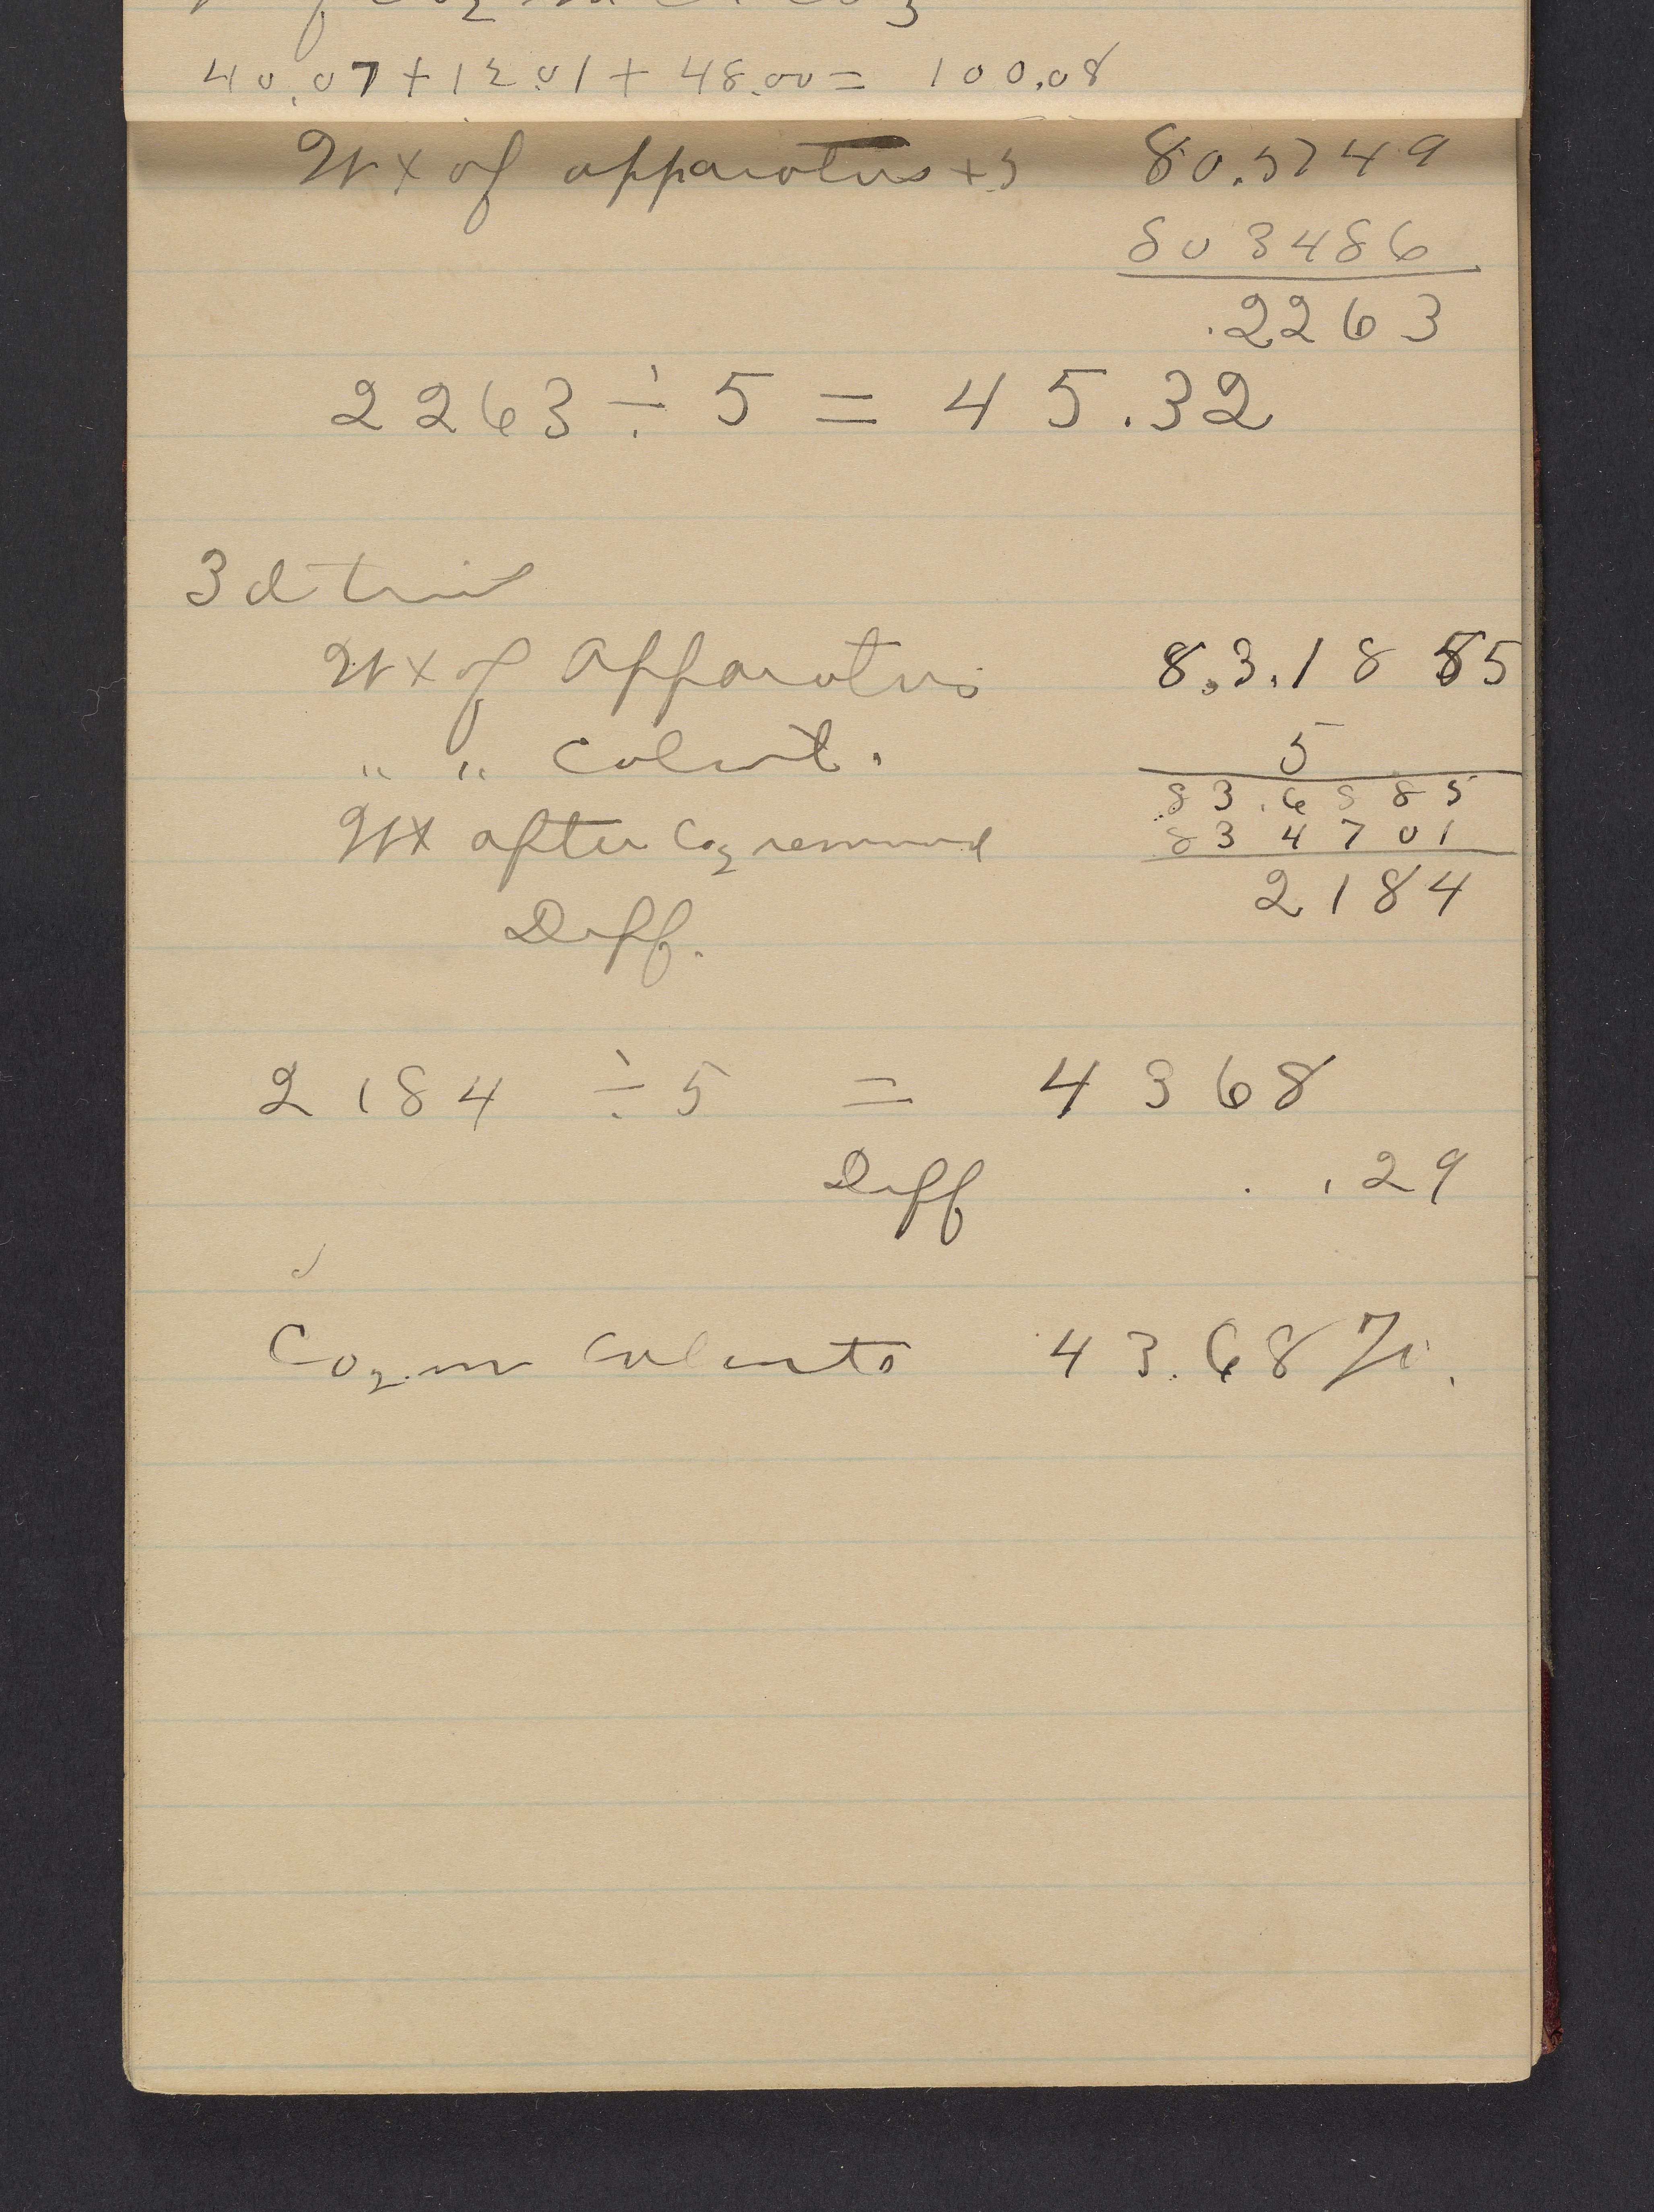 40.07 + 12.01 + 48.00 = 100.08
Wt of apparatus + .5 80.5749
803486
.2263
2263 ÷ 5 = 45.32
3d trial
Wt of Apparatus 8.3.18 85
" " Calcit. 5
83.6885
Wt after Co2 removed 834701
2184
Diff.
2184 ÷ 5 = 4368
Diff . .29
Co2 in Calcite 43.68 %.